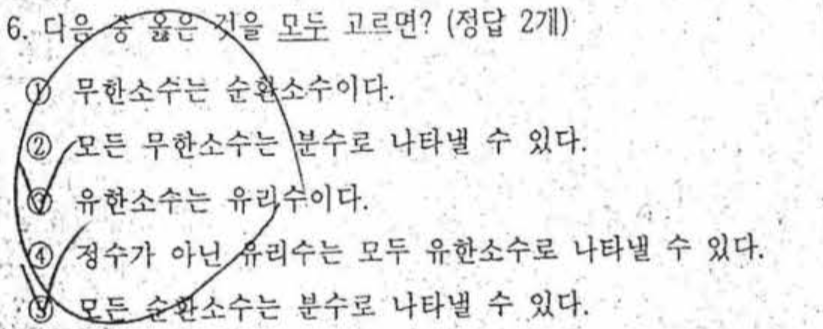 6. 다음 중 옳은 것을 모두 고르면? (정답 2개)
① 무한소수는 순환소수이다.
② 모든 무한소수는 분수로 나타낼 수 있다.
③ 유한소수는 유리수이다.
④ 정수가 아닌 유리수는 모두 유한소수로 나타낼 수 있다.
⑤ 모든 순환소수는 분수로 나타낼 수 있다.